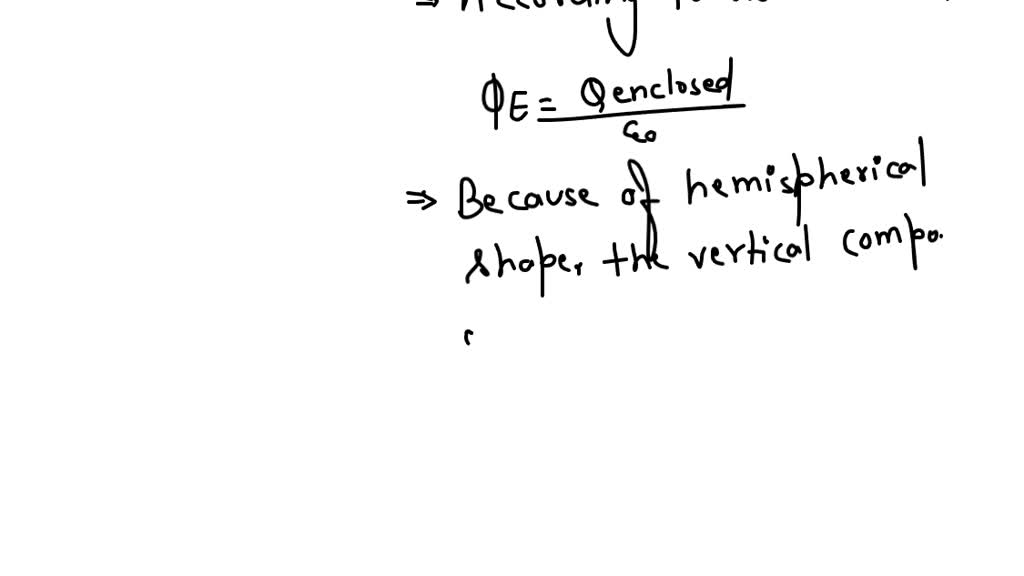 ⇒ According
ΦE = Qenclosed
ε0
⇒ Because of hemispherical
shape, the vertical compo.